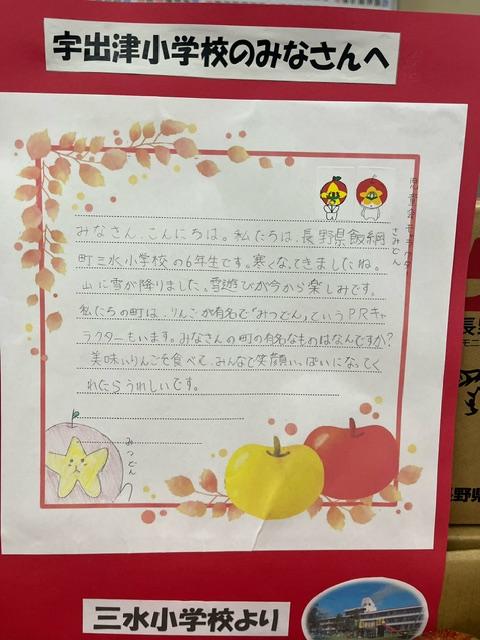 宇出津小学校のみなさんへ
みなさん、こんにちは。私たちは、長野県飯綱
町三水小学校の6年生です。寒くなってきましたね。
山に雪が降りました、雪遊びが今から楽しみです。
私たちの町は、りんごが有名で"みつどん"というPRキャ
ラクターもいます。みなさんの町の有名なものはなんですか?
美味しいりんごを食べて、みんなで笑顔いっぱいになってく
れたらうれしいです。
さみどん
みつどん
三水小学校より
長野県